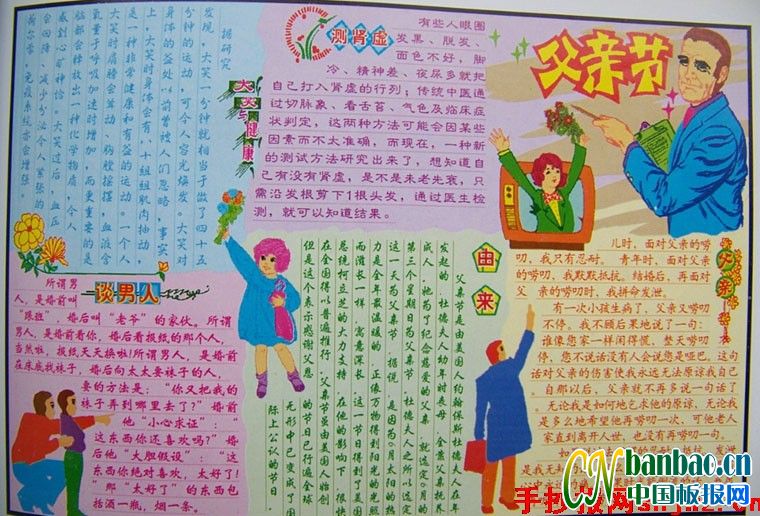 大笑与健康
据研究
发现，大笑一分钟就相当于做了四十五
分钟的运动，可令人容光焕发。大笑对
身体的益处，以前曾被人们忽略，事实
上，大笑时身体会有八十组肌肉抽动，
是一种非常健康和有益的运动。一个人
大笑时肩膀会耸动，胸膛摇摆，血液含
氧量于呼吸加速时增加，而更重要的是
脑部会释放出一种化学物质，令人
感到心旷神怡。大笑过后，血压
会回降，减少分泌令人紧张的
荷尔蒙，免疫系统亦会增强
测肾虚
有些人眼圈
发黑、脱发、
面色不好，脚
冷、精神差、夜尿多就把
自己打入肾虚的行列；传统中医通
过切脉象、看舌苔、气色及临床症
状判定，这两种方法可能会因某些
因素而不太准确，而现在，一种新
的测试方法研究出来了，想知道自
己有没有肾虚，是不是未老先衰，只
需沿发根剪下1根头发，通过医生检
测，就可以知道结果。
父亲节
谈男人
所谓男
人，是婚前叫
“跟班”，婚后叫“老爷”的家伙。所谓
男人，是婚前看你，婚后看报纸的那个人，
当然啦，报纸天天换啦！所谓男人，是婚前
在床底找袜子，婚后向太太要袜子的人，
要的方法是：“你又把我的
袜子弄到哪里去了？”婚前
他“小心求证”：“
这东西你还喜欢吗？”婚
后他“大胆假设”：“这
东西你绝对喜欢，太好了！
”那“太好了”的东西也
包括酒一瓶，烟一条。
由来
父亲节是由美国人约翰保斯杜德夫人在年
发起的，杜德夫人幼年时丧母，全靠父亲抚养
成人，她为了纪念慈爱的父亲，就选定6月的
第三个星期日为父亲节。杜德夫人之所以选定
这一天为父亲节，据说，是因为6月太阳的热
力是全年最温暖的，正像万物得到阳光的光照
而滋长一样，寓意深长，这一节日得到美国
总统柯立芝的大力支持，在他的影响下，很快
在全国得以普遍推行，父亲节虽由美国人始创
但是这个表示感谢父恩的节日已行遍全球
无形中已变成了国
际上公认的节日。
父亲
儿时，面对父亲的唠
叨，我只有忍耐。青年时，面对父亲的唠
叨，我默默抵抗。结婚后，再面对
父亲的唠叨时，我拼命发泄。
有一次小孩生病了，父亲又唠叨
不停。我不顾后果地说了一句：
谁像您家一样闲得慌，整天唠叨
停，您不说话没有人会说您是哑巴，这句
话对父亲的伤害使我永远无法原谅我自己
自那以后，父亲就不再多说一句话了
无论我是如何地乞求他的原谅，无论我
是多么地希望他再唠叨一次，可他老人
家直到离开人世，也没有再唠叨一句。
CN banbao.cn
中国板报网
手抄报网